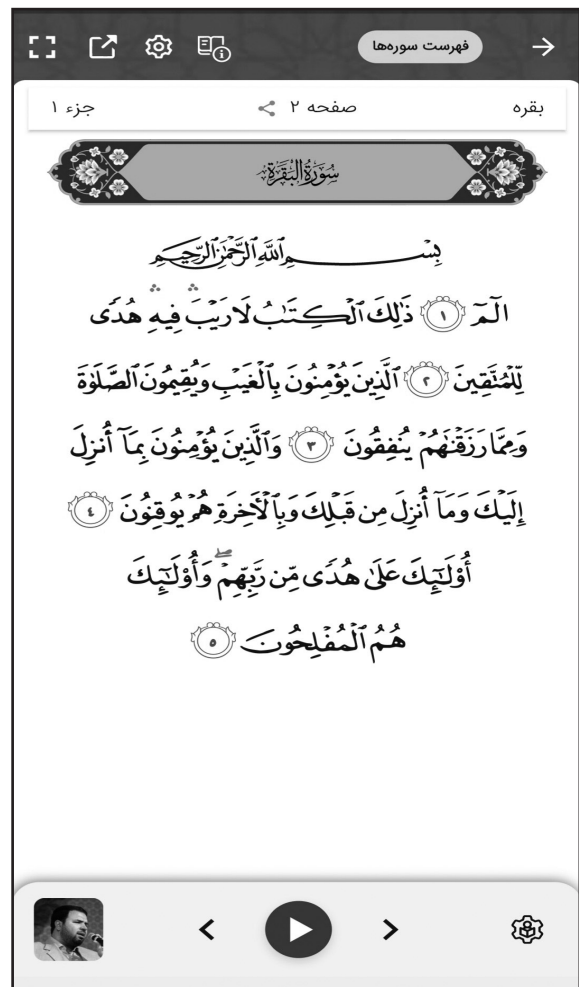 فهرست سوره‌ها
بقره صفحه ۲ جزء ۱
سُورَةُ البَقَرَةِ
بِسۡمِ ٱللَّهِ ٱلرَّحۡمَٰنِ ٱلرَّحِيمِ
الٓمٓ ١ ذَٰلِكَ ٱلۡكِتَٰبُ لَا رَيۡبَۛ فِيهِۛ هُدٗى
لِّلۡمُتَّقِينَ ٢ ٱلَّذِينَ يُؤۡمِنُونَ بِٱلۡغَيۡبِ وَيُقِيمُونَ ٱلصَّلَوٰةَ
وَمِمَّا رَزَقۡنَٰهُمۡ يُنفِقُونَ ٣ وَٱلَّذِينَ يُؤۡمِنُونَ بِمَآ أُنزِلَ
إِلَيۡكَ وَمَآ أُنزِلَ مِن قَبۡلِكَ وَبِٱلۡأٓخِرَةِ هُمۡ يُوقِنُونَ ٤
أُوْلَٰٓئِكَ عَلَىٰ هُدٗى مِّن رَّبِّهِمۡۖ وَأُوْلَٰٓئِكَ
هُمُ ٱلۡمُفۡلِحُونَ ٥